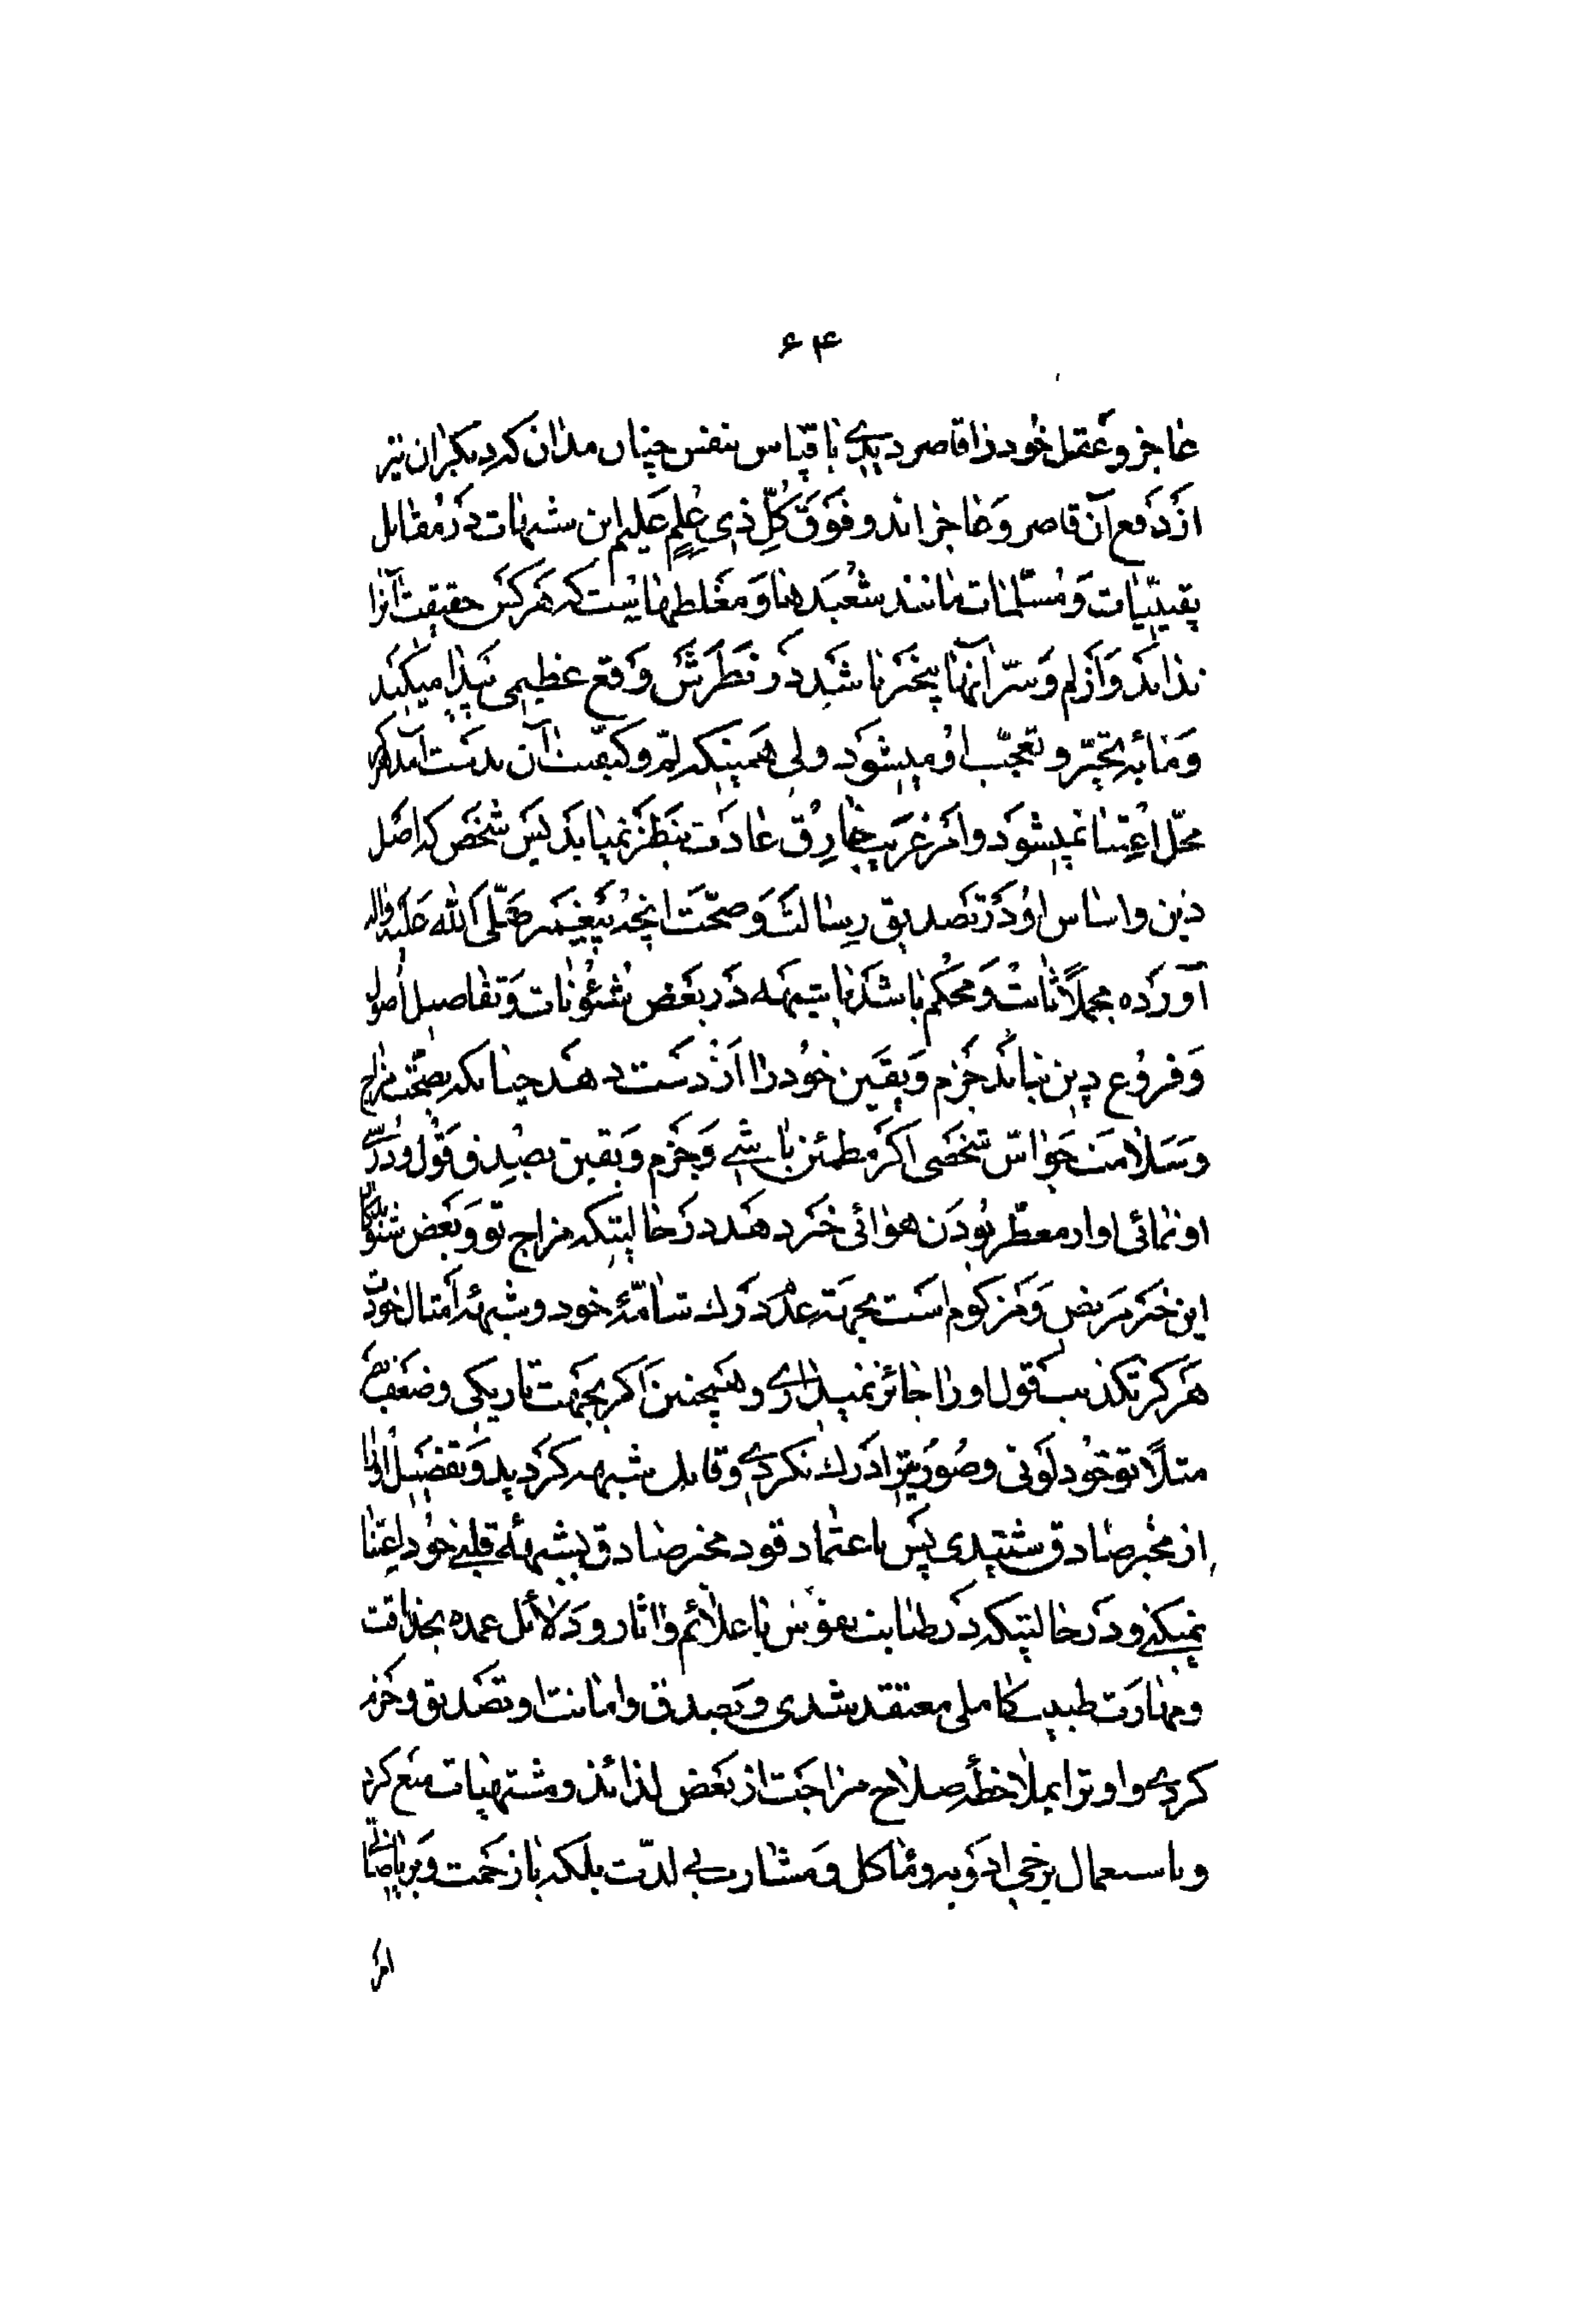 ۶۴
عاجز و عقل خود را قاصر دیدی با قیاس بنفس چنان مدان که دیگران نیز
از دفع آن قاصر و عاجز اند و فَوقَ کُلِّ ذِي عِلمٍ عَلیم این شبهات در مقابل
یقینیّات و مُسَلّمات مانند شعبدها و مغلطهائیست که هر کس حقیقت آنرا
نداند و از لم و سرّ آنها بیخبر باشد در نظرش وقع عظیمی پیدا میکند
و مایه تحیّر و تعجّب او میشود ولی همینکه لمّ و کیفیّت آن بدست آمد دیگر
محلّ اعتنا نمیشود و امر غریب خارق عادت بنظر نمیاید پس شخص که اصل
دین و اساس او در تصدیق رسالت و صحّت انچه پیغیمبر صلّی الله علیه واله
آورده مجملاً ثابت و محکم باشد نبایستی به در بعض شئونات و تفاصیل اصول
و فروع دین نباید جزم و یقین خود را از دست دهد چنانکه بصحّت مزاج
و سلامت حواسّ شخصی اگر مطمئن باشی و جزم و یقین بصدق قول و درستی
او نمائی او از معطّر بودن هوائی خبر دهد در حالیتکه مزاج تو و بعض شنوندگان
این خبر مریض و مزکوم است بجهة عدم درک شامّهٔ خود و شبهه امثال خودت
هرگز تکذیب قول او را جائز نمیداری و همچنین اگر بجهت تاریکی و ضعف بصر
مثلاً تو خود لونی و صورتیرا درک نکردی و قابل شبهه گردید و تفصیل انرا
از مخبر صادق شنیدی پس با عتماد قود مخبر صادق بشبههٔ قلبی خود اعتنا
نمیکنی و در حالیتکه در طبابت نفوس با علائم و اثار و دلائل عمده بحذاقت
و مهارت طبیب کاملی معتقد شدی و بصدق و امانت او تصدیق و جزم
کردی و او ترا بملاحظهٔ صلاح مزاجت از بعض لذائذ و مشتهیات منع کرد
و باستعمال برخی ادویه و مآکل و مشارب بی لذّت بلکه با زحمت و بریاضتی
امر